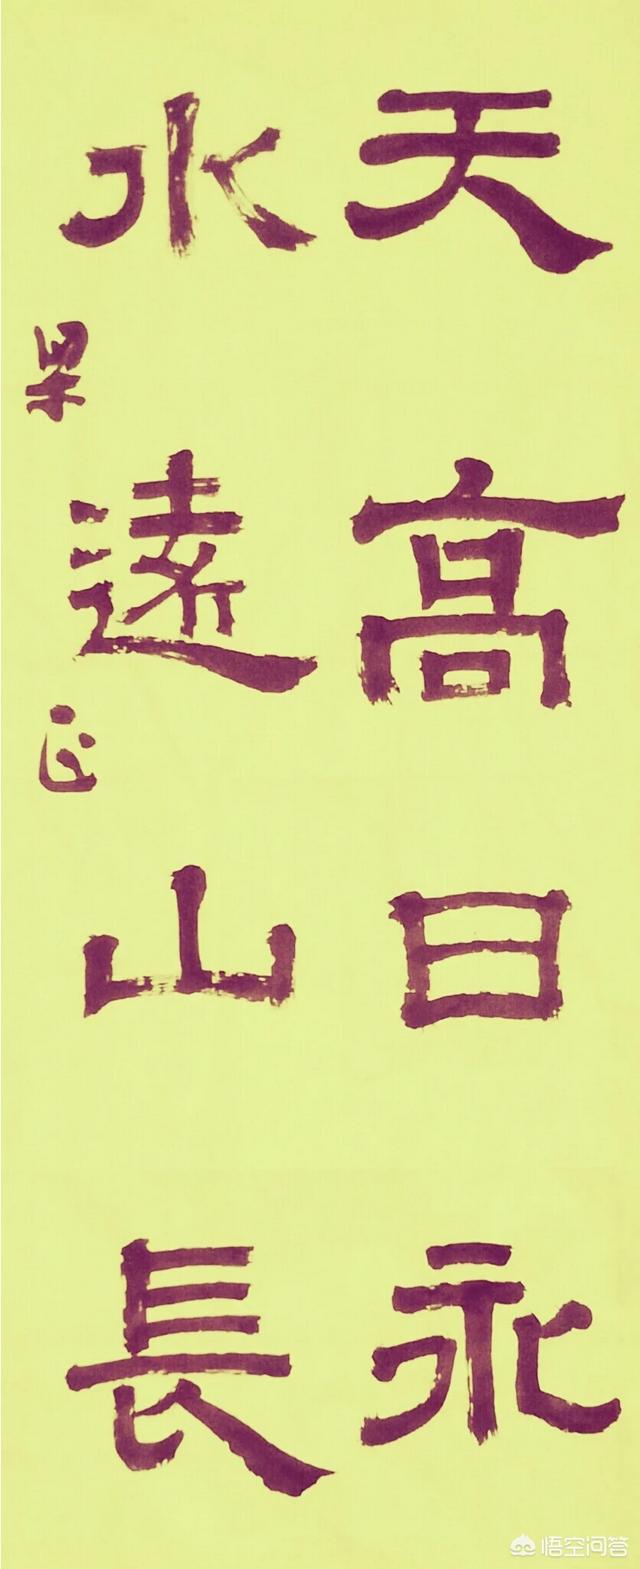 天高日永
水遠山長
果正
悟空问答